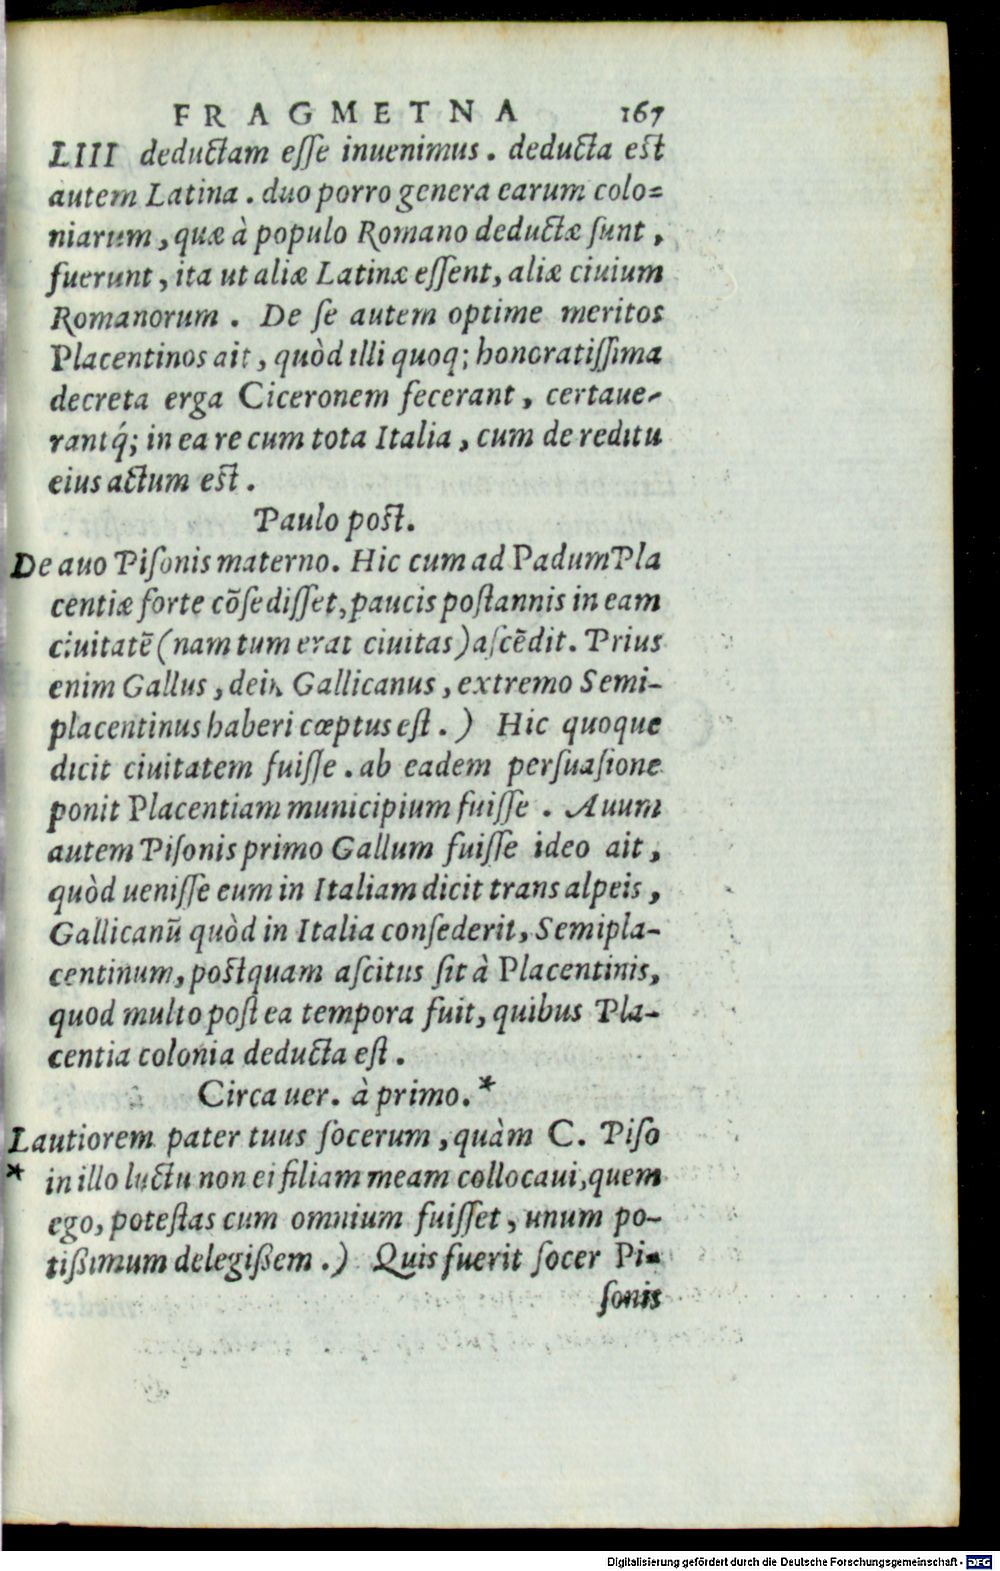 FRAGMETNA 167
LIII deductam esse inuenimus. deducta est
autem Latina. duo porro genera earum colo=
niarum, quæ à populo Romano deductæ sunt,
fuerunt, ita ut aliæ Latinæ essent, aliæ ciuium
Romanorum. De se autem optime meritos
Placentinos ait, quòd illi quoq; honoratissima
decreta erga Ciceronem fecerant, certaue-
rantq́; in ea re cum tota Italia, cum de reditu
eius actum est.
Paulo post.
De auo Pisonis materno. Hic cum ad Padum Pla
centiæ forte cõsedisset, paucis post annis in eam
ciuitatẽ (nam tum erat ciuitas) ascẽdit. Prius
enim Gallus, dein Gallicanus, extremo Semi-
placentinus haberi cœptus est.) Hic quoque
dicit ciuitatem fuisse. ab eadem persuasione
ponit Placentiam municipium fuisse. Auum
autem Pisonis primo Gallum fuisse ideo ait,
quòd uenisse eum in Italiam dicit trans alpeis,
Gallicanũ quòd in Italia consederit, Semipla-
centinum, postquam ascitus sit à Placentinis,
quod multo post ea tempora fuit, quibus Pla-
centia colonia deducta est.
Circa uer. à primo.*
Lautiorem pater tuus socerum, quàm C. Piso
* in illo luctu non ei filiam meam collocaui, quem
ego, potestas cum omnium fuisset, unum po-
tißimum delegißem.) Quis fuerit socer Pi=
sonis
Digitalisierung gefördert durch die Deutsche Forschungsgemeinschaft - DFG